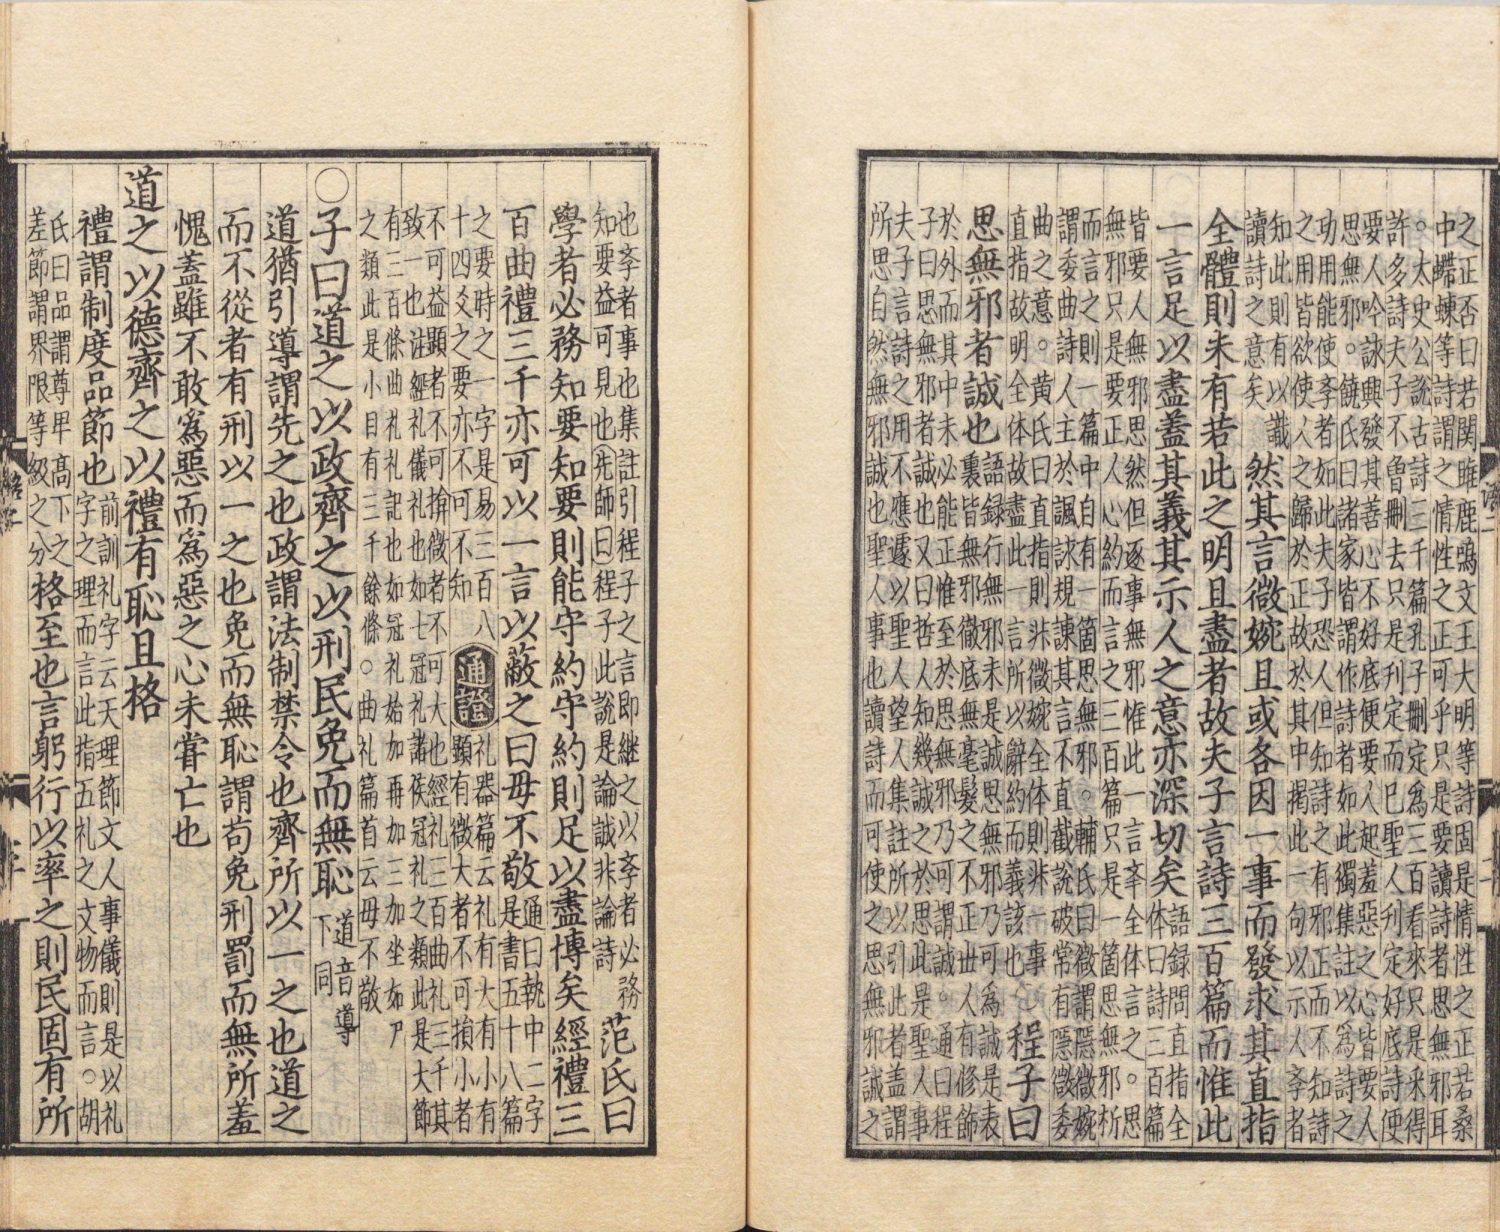 之正否曰若関雎鹿鳴文王大明等詩固是情性之正若桑
中蝃蝀等詩謂之情性之正可乎只是要讀詩者思無邪耳
。太史公說古詩三千篇孔子刪定為三百看來只是采得
許多詩夫子不曾刪去只是刋定而巳聖人刋定好底詩便
要人吟詠興發其善心不好底便要人起羞惡之心皆要人
思無邪。饒氏曰諸家皆謂作詩者如此獨集註以為詩之
功用能使孝者如此夫子恐人但知詩之有邪正而不知詩
之用皆欲使人之歸於正故於其中揭此一句以示人孝者
知此則有以識
讀詩之之意矣
然其言微婉且或各因一事而發求其直指
全體則未有若此之明且盡者故夫子言詩三百篇而惟此
一言足以盡蓋其義其示人之意亦深切矣
語録問直指全
体曰詩三百篇
皆要人無邪思然但逐事無邪惟此一言孝全体言之。思
無邪只是要正人心約而言之三百篇只是一箇思無邪析
而言之則一篇中自有一箇思無邪。輔氏曰微謂隱微婉
謂委曲詩人主於諷詠規諫其言不直截說破常有隱微委
曲之意。黃氏曰直指則非微婉全体則非一事
直指故明全体故盡此一言所以辭約而義該也
程子曰
思無邪者誠也
語録行無邪未是誠思無邪乃可為誠是表
裏皆無邪徹底無毫髮之不正丗人有修飾
於外而其中未必能正惟至於思無邪乃可謂誠。通曰程
子曰思無邪者誠也又曰哲人知幾誠之於思此是聖人事
夫子言詩之用不應遽以聖人望人集註所以引此者蓋謂
所思自然無邪誠也聖人事也讀詩而可使之思無邪誠之
也孝者事也集註引程子之言即継之以孝者必務
知要益可見也先師曰程子此說是論誠非論詩
范氏曰
學者必務知要知要則能守約守約則足以盡博矣經禮三
百曲禮三千亦可以一言以蔽之曰毋不敬
通曰執中二字
是書五十八篇
之要時之一字是易三百八
十四爻之要亦不可不知
通證
礼器篇云礼有大有小有
顯有微大者不可損小者
不可益顯者不可揜微者不可大也經礼三百曲礼三千其
致一也注經礼儀礼也如七冠礼諸侯冠礼之類此是大節
有三百條曲礼礼記也如冠礼始加再加三加坐如尸
之類此是小目有三千餘條。曲礼篇首云毋不敬
○子曰道之以政齊之以刑民免而無恥
道音導
下同
道猶引導謂先之也政謂法制禁令也齊所以一之也道之
而不從者有刑以一之也免而無恥謂苟免刑罰而無所羞
愧蓋雖不敢為惡而為惡之心未甞亡也
道之以德齊之以禮有恥且格
禮謂制度品節也
前訓礼字云天理節文人事儀則是以礼
字之理而言此指五礼之文物而言。胡
氏曰品謂尊卑髙下之
差節謂界限等級之分
格至也言躬行以率之則民固有所